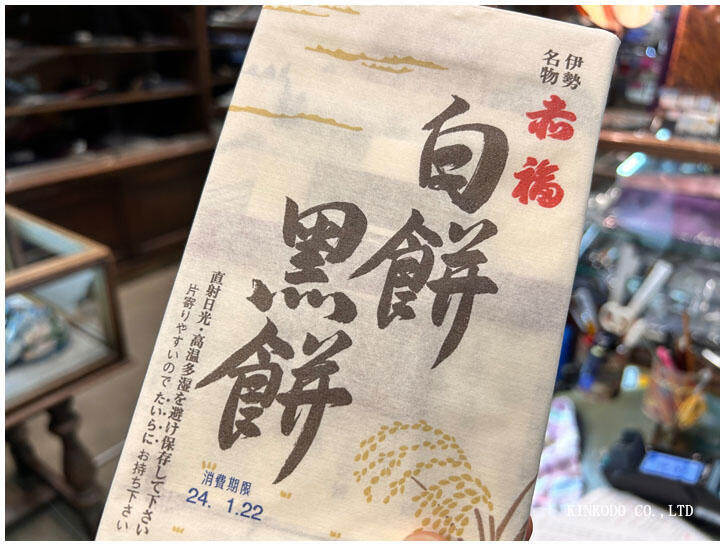 伊勢
名物
赤福
白餅
黒餅
直射日光・高温多湿を避け保存して下さい
片寄りやすいので たいらに お持ち下さい
消費期限
24. 1.22
KINKODO CO.,LTD